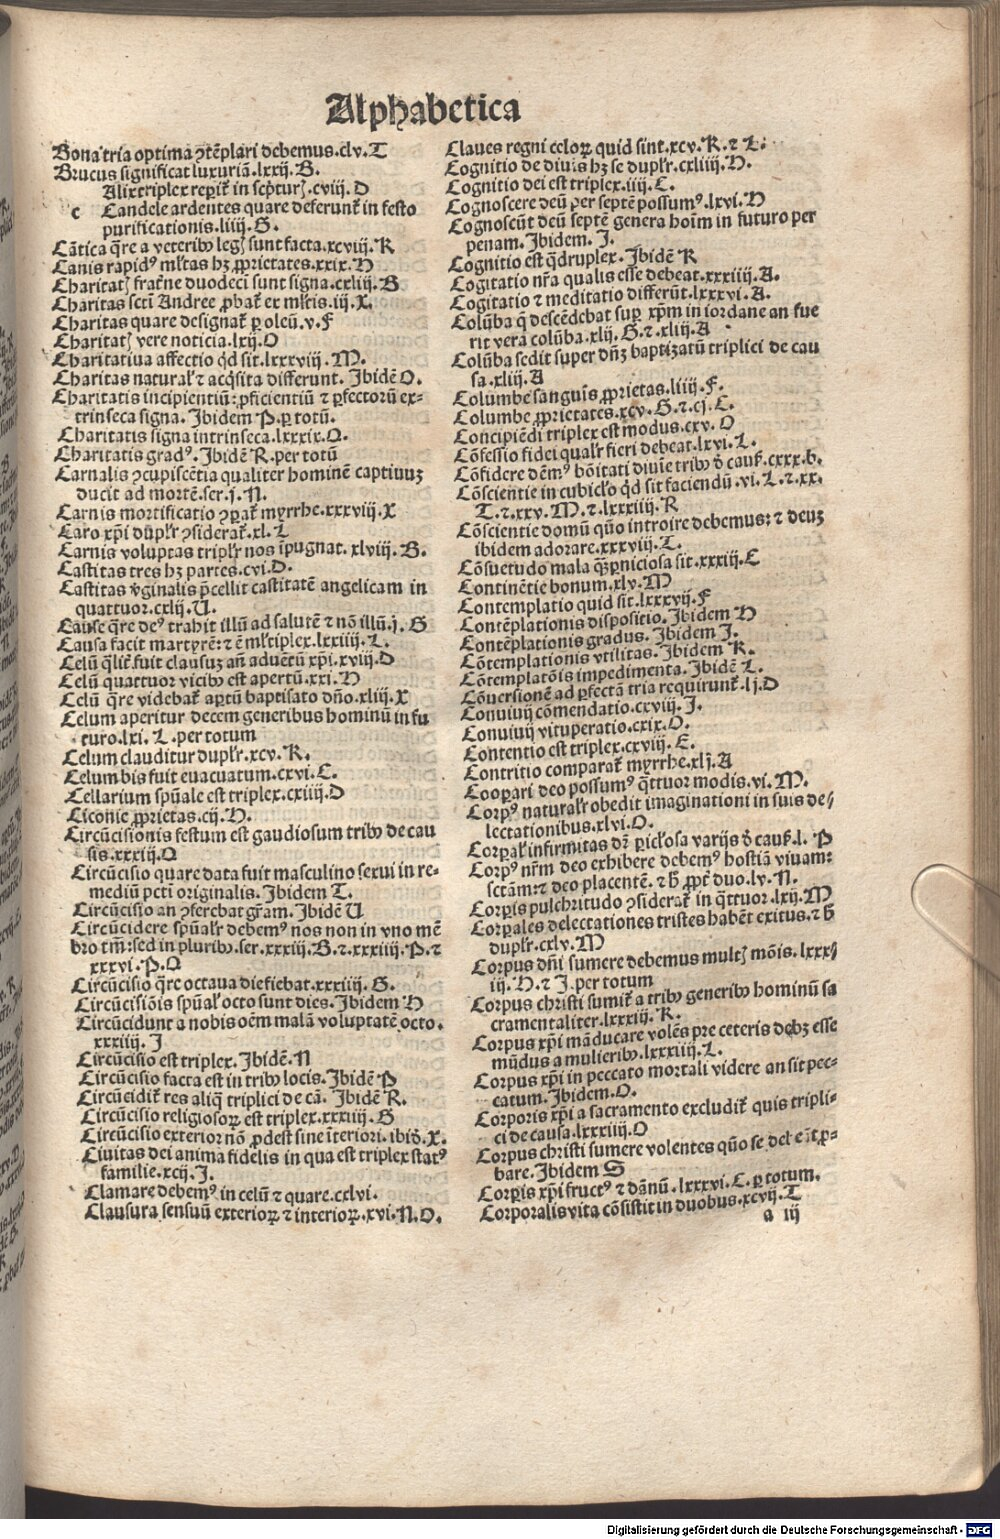 Alphabetica
Bona tria optima ꝯtẽplari debemus.clv.T
Brucus significat luxuriã.lxxij.B.
Alix triplex reperiť in scptur.cviij.D
c Candele ardentes quare deferunť in festo
purificationis.liiij.G.
Cãtica q̃re a veterib leg sunt facta.xcviij.R
Canis rapidꝰ mľtas hꝫ ꝓprietates.xxix.H
Charitatꝫ frat̃ne duodecĩ sunt signa.cxliij.B
Charitas sctĩ Andree ꝓbať ex mľtis.iij.X.
Charitas quare designať ꝑ oleũ.v.F
Charitatꝫ vere noticia.lxij.O
Charitatiua affectio qd sit.lxxxviij.M.
Charitas naturaľ ⁊ acq̃sita differunt. Ibidẽ O.
Charitatis incipientiũ: ꝓficientiũ ⁊ ꝑfectorũ ex-
trinseca signa. Ibidem P.ꝑ totũ.
Charitatis signa intrinseca.lxxxix.Q.
Charitatis gradꝰ. Ibidẽ R.per totũ
Carnalis ꝯcupiscẽtia qualiter hominẽ captiuuꝫ
ducit ad mortẽ.ser.j.N.
Carnis mortificatio ꝯꝑať myrrhe.xxxviij.X
Caro xp̃i dupľr ꝯsiderať.xl.L
Carnis voluptas tripľr nos ĩpugnat.xlviij.B.
Castitas tres hꝫ partes.cvi.D.
Castitas v̄ginalis p̃cellit castitatẽ angelicam in
quattuor.cxlij.U.
Cause q̃re deꝰ trahit illũ ad salutẽ ⁊ nõ illũ.j.G
Causa facit martyrẽ: ⁊ ẽ mľtiplex.lxxiiij.L.
Celũ q̃lit̃ fuit clausuꝫ añ aduẽtũ xp̃i.xviij.D
Celũ quattuor vicib est apertũ.xxi.H
Celũ q̃re videbať aꝑtũ baptisato dño.xliij.X
Celum aperitur decem generibus hominũ in fu
turo.lxi.L.per totum
Celum clauditur dupľr.xcv.K.
Celum bis fuit euacuatum.cxvi.C.
Cellarium spũale est triplex.cxiiij.D
Ciconie ꝓprietas.cij.H.
Circũcisionis festum est gaudiosum trib de cau
sis.xxxiij.Q
Circũcisio quare data fuit masculino sexui in re-
mediũ pctĩ originalis. Ibidem T.
Circũcisio an ꝯferebat gr̃am. Ibidẽ U
Circũcidere spũaľr debemꝰ nos non in vno mẽ
bro tm̃: sed in plurib.ser.xxxiij.B.⁊.xxxiiij.P.⁊
xxxvi.P.Q
Circũcisio q̃re octaua die fiebat.xxxiiij.G.
Circũcisiõis spũaľ octo sunt dies. Ibidem H
Circũcidunt a nobis oẽm malã voluptatẽ octo.
xxxiiij.I
Circũcisio est triplex. Ibidẽ.N
Circũcisio facta est in trib locis. Ibidẽ P
Circũcidiť res aliq̃ triplici de cã. Ibidẽ R.
Circũcisio religiosoꝝ est triplex.xxxiiij.G
Circũcisio exterior nõ ꝓdest sine ĩteriori. ibid̃.X.
Ciuitas dei anima fidelis in qua est triplex statꝰ
familie.xcij.I.
Clamare debemꝰ in celũ ⁊ quare.cxlvi.
Clausura sensuũ exterioꝝ ⁊ interioꝝ.xvi.N.O.
Claues regni celoꝝ quid sint.xcv.K.⁊ L.
Cognitio de diuĩs hꝫ se dupľr.cxliiij.H.
Cognitio dei est triplex.iiij.C.
Cognoscere deũ per septẽ possumꝰ.lxvi.H
Cognoscũt deũ septẽ genera hoĩm in futuro per
penam. Ibidem. I.
Cognitio est q̃druplex. Ibidẽ K
Cogitatio nr̃a qualis esse debeat.xxxiiij.A.
Cogitatio ⁊ meditatio differũt.lxxxvi.A.
Colũba q̃ descẽdebat suꝑ xp̃m in iordane an fue
rit vera colũba.xlij.G.⁊.xliij.A
Colũba sedit super dñꝫ baptizatũ triplici de cau
sa.xliij.A
Columbe sanguĩs ꝓprietas.liiij.F.
Columbe ꝓprietates.xcv.G.⁊.cj.C.
Concipiẽdi triplex est modus.cxv.O
Cõfessio fidei qualľr fieri debeat.lxvi.L.
Cõfidere dẽmꝰ bõitati diuĩe trib d̉ causꝭ.cxxx.b.
Cõscientie in cubicľo qd sit faciendũ.vi.L.⁊.xx.
T.⁊.xxv.M.⁊.lxxxiiij.R
Cõscientie domũ quõ introire debemus: ⁊ deuꝫ
ibidem adorare.xxxviij.T.
Cõsuetudo mala q̃ꝫ ꝑniciosa sit.xxxiij.E
Continẽtie bonum.xlv.M
Contemplatio quid sit.lxxxvij.F
Contẽplationis dispositio. Ibidem H
Contẽplationis gradus. Ibidem I.
Cõtemplationis vtilitas. Ibidem K.
Cõtemplatõis impedimenta. Ibidẽ L.
Cõuersionẽ ad ꝑfectã tria requirunť.lj.D
Conuiuij cõmendatio.cxviij.I.
Conuiuij vituperatio.cxix.O.
Contentio est triplex.cxviij.E.
Contritio comparať myrrhe.xlj.A
Cooꝑari deo possumꝰ q̃ttuor modis.vi.M.
Corpꝰ naturaľr obedit imaginationi in suis de/
lectationibus.xlvi.O.
Corꝑaľ infirmitas dr̃ picľosa varijs d̉ causꝭ.l.P
Corpꝰ nr̃m deo exhibere debemꝰ hostiã viuam:
sctãm: ⁊ deo placentẽ. ⁊ h̃ ꝓpt̃ duo.lv.N.
Corꝑis pulchritudo ꝯsiderať in q̃ttuor.lxij.M
Corꝑales delectationes tristes habẽt exitus. ⁊ h̃
dupľr.cxlv.M
Corpus dñi sumere debemus multꝫ mõis.lxxx
iij.H.⁊ I.per totum
Corpus christi sumiť a trib generib hominũ sa
cramentaliter.lxxxiij.K.
Corpus xp̃i mãducare volẽs pre ceteris debꝫ esse
mũdus a mulierib.lxxxiiij.L.
Corpus xp̃i in peccato mortali videre an sit pec-
catum. Ibidem.O.
Corporis xp̃i a sacramento excludiť quis tripli-
ci de causa.lxxxiiij.O
Corpus christi sumere volentes quõ se debeãt ꝓ-
bare. Ibidem S
Corꝑis xp̃i fructꝰ ⁊ dãnũ.lxxxvi.C.ꝑ totum.
Corporalis vita cõsistit in duobus.xcvij.T
a iij
Digitalisierung gefördert durch die Deutsche Forschungsgemeinschaft - DFG